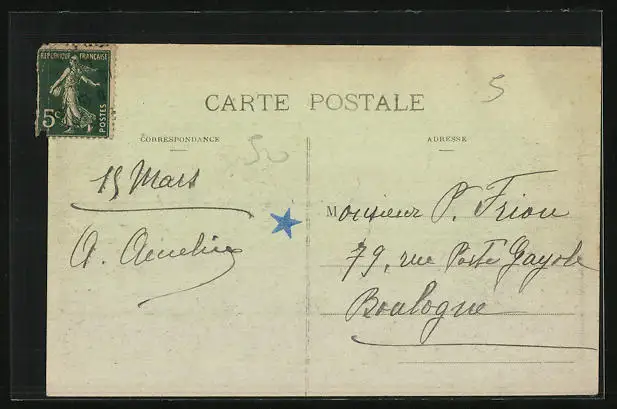 RÉPUBLIQUE FRANÇAISE
5c
POSTES
5
CARTE POSTALE
CORRESPONDANCE
ADRESSE
50
15 Mars
A.
Monsieur P. Frion
79, rue Porte Gayole
Boulogne